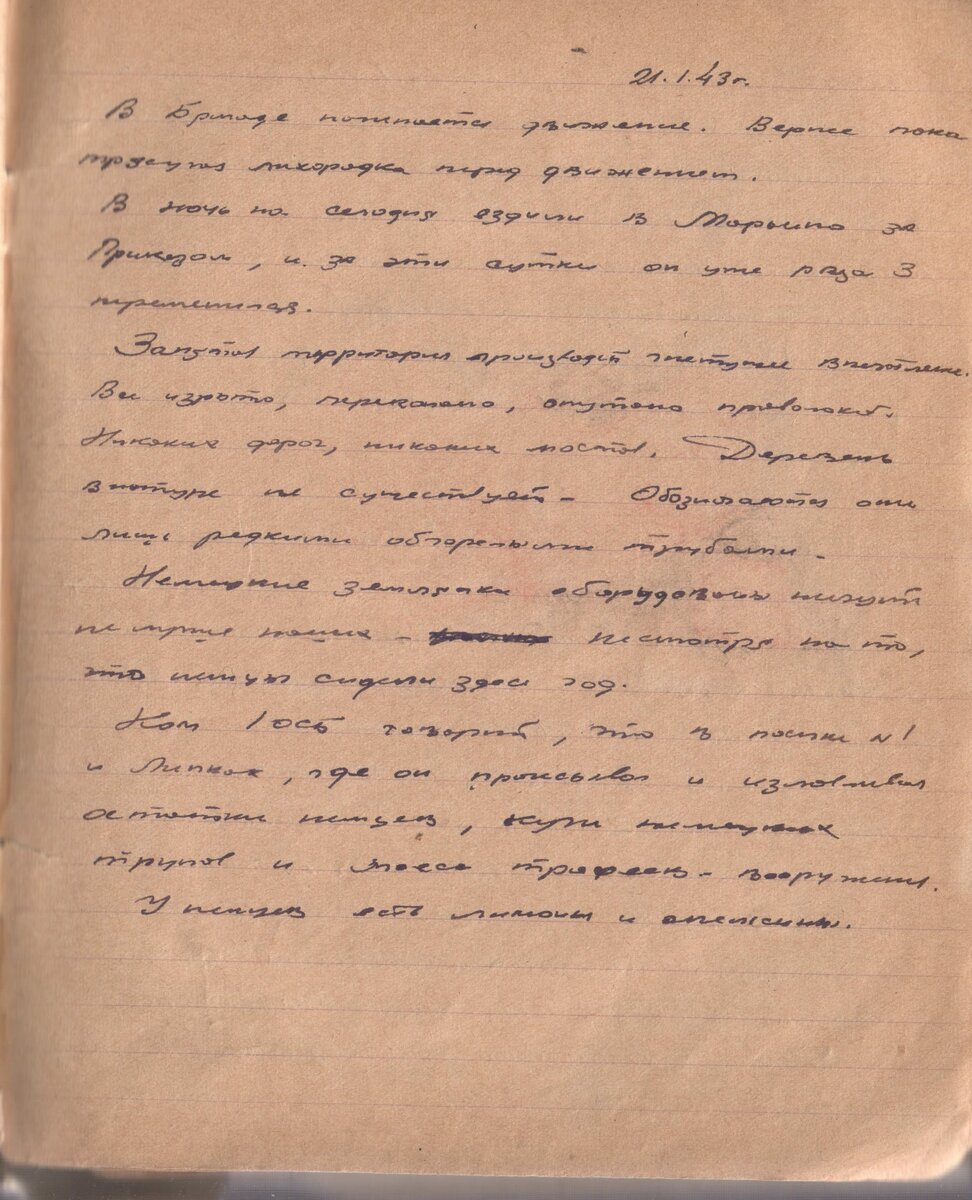 21.1.43г.
В Бригаде начинается движение. Вернее пока
лихорадка перед движением.
В ночь на сегодня ездили в Марьино за
Приказом, и за эти сутки он уже раза 3
переменился.
Занятая территория производит гнетущее впечатление.
Все изрыто, перекопано, опутано проволокой.
Никаких дорог, никаких мостов. Деревень
в натуре не существует - Обозначаются они
лишь редкими обгорелыми трубами -
Немецкие землянки оборудованы ничуть
не лучше наших - несмотря на то,
что немцы сидели здесь год.
Ком 1 ОСБ говорит, что в поселке №1
и Липках, где он прочесывал и излавливал
остатки немцев, кучи немецких
трупов и масса трофеев - вооружения.
У немцев есть лимоны и апельсины.